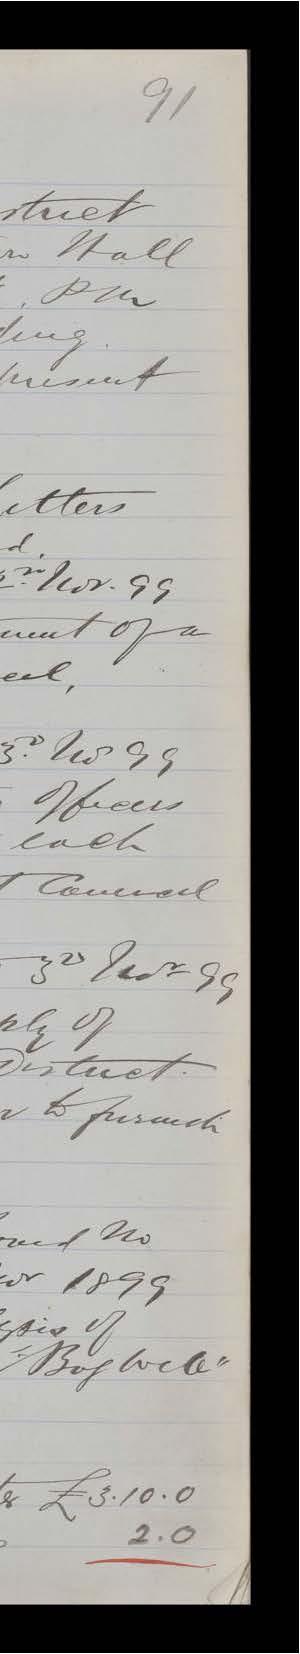 91
strict
Hall
P M
ding.
present
Letters
d.
2nd Nov. 99
ment of a
cil,
3d Nov 99
Officers
each
t Council
3d Novr 99
ply of
District.
r to furnish
ound No
Nov 1899
lysis of
"Bog Well"
£3.10.0
2.0